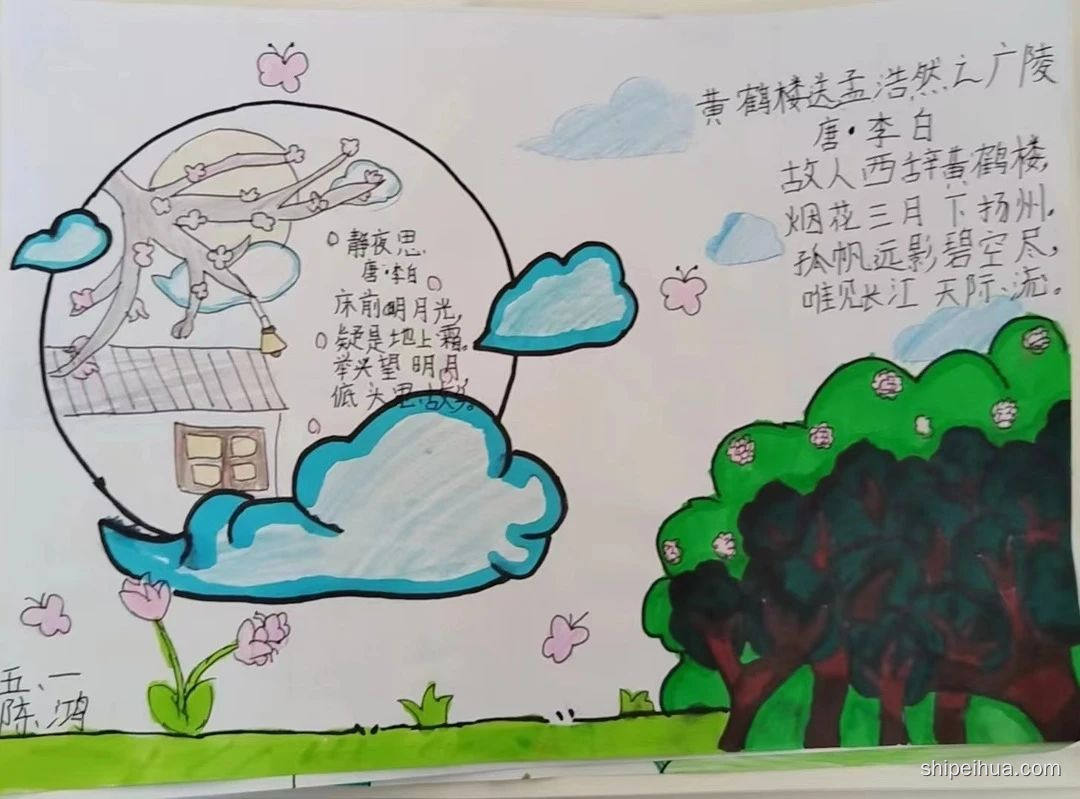 黄鹤楼送孟浩然之广陵
唐·李白
故人西辞黄鹤楼,
烟花三月下扬州。
孤帆远影碧空尽,
唯见长江天际流。
静夜思
唐·李白
床前明月光,
疑是地上霜。
举头望明月
低头思故乡。
五、一
陈、鸿
shipeihua.com